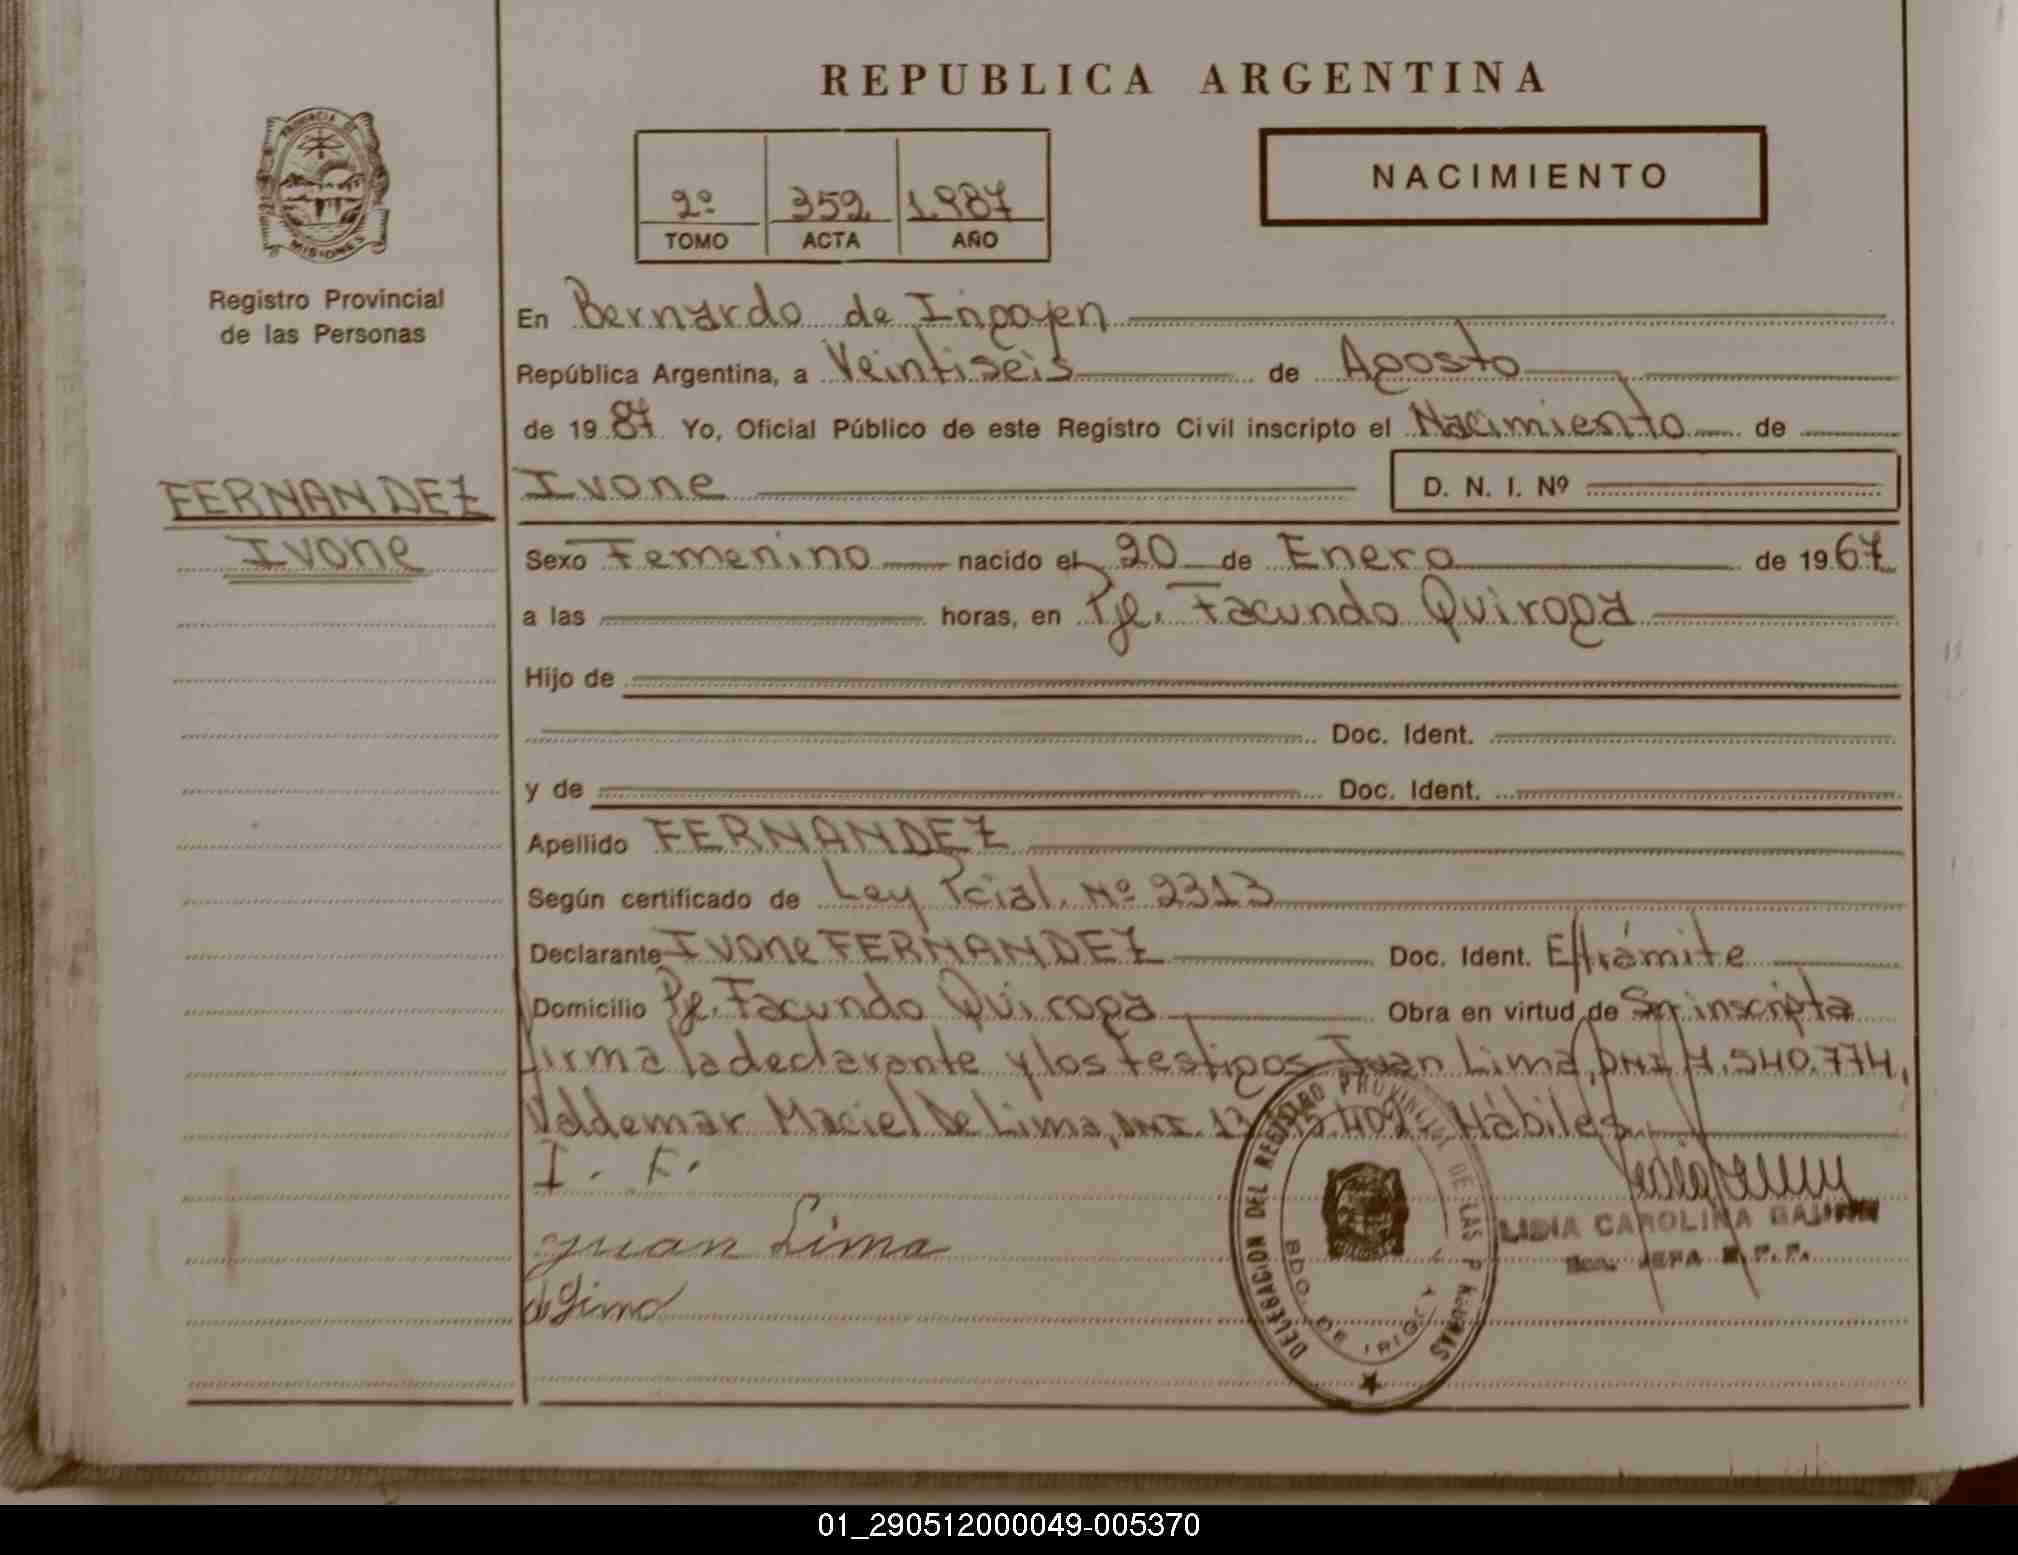 REPUBLICA ARGENTINA
PROVINCIA DE
MISIONES
Registro Provincial
de las Personas
2º 359 1.987
TOMO ACTA AÑO
NACIMIENTO
En Bernardo de Irigoyen
República Argentina, a Veintiseis de Agosto
de 1987 Yo, Oficial Público de este Registro Civil inscripto el Nacimiento de
FERNANDEZ
Ivone
Ivone D. N. I. Nº
Sexo Femenino nacido el 20 de Enero de 1967
a las horas, en Pje. Facundo Quiroga
Hijo de
Doc. Ident.
y de Doc. Ident.
Apellido FERNANDEZ
Según certificado de Ley Pcial. Nº 2313
Declarante Ivone FERNANDEZ Doc. Ident. E/trámite
Domicilio Pje. Facundo Quiroga Obra en virtud de Ser inscripta
firma la declarante y los testigos Juan Lima, DNI 7.540.774,
Valdemar Maciel De Lima, DNI. 13 402 Hábiles
I. F.
Juan Lima
d Lima
DELEGACION DEL REGISTRO PROVINCIAL DE LAS P
BDO. DE IRIGOY
LIDIA CAROLINA
JEFA R. P. P.
01_290512000049-005370